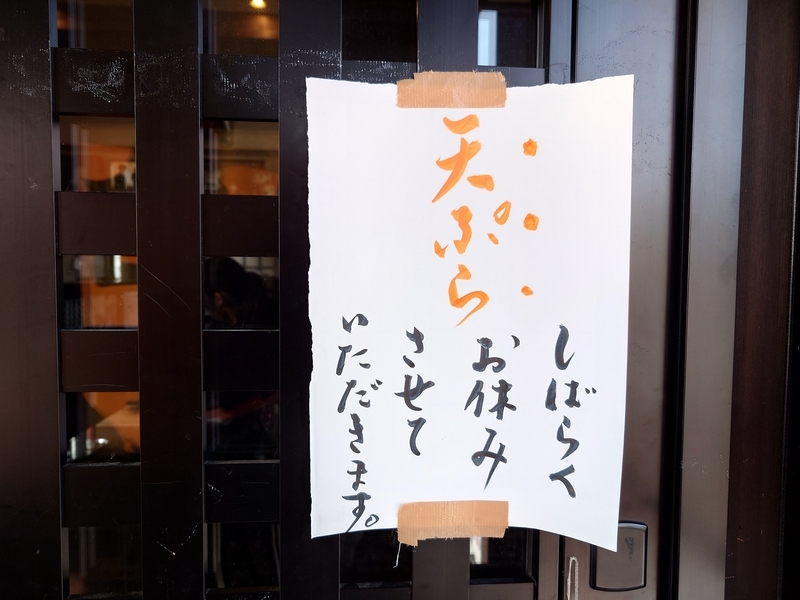 天ぷら
しばらく
お休み
させて
いただきます。